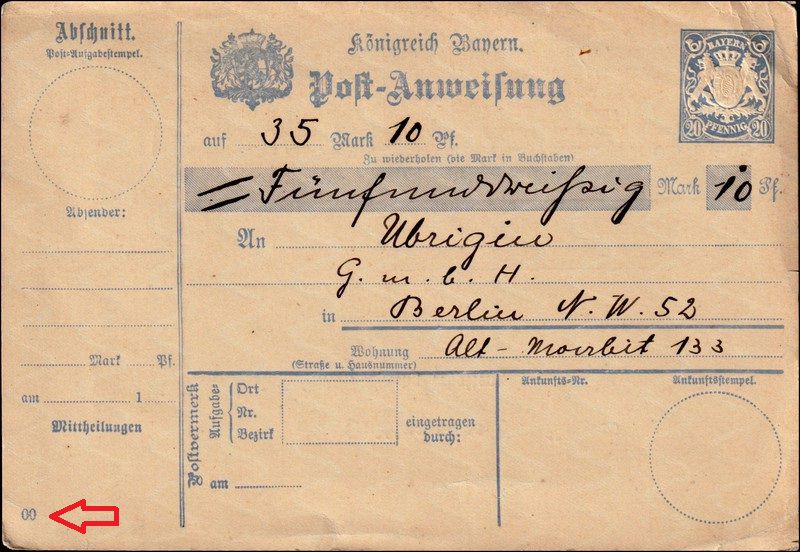 Abschnitt.
Post-Aufgabestempel.
Absender:
Mark Pf.
am 1
Mittheilungen
00
Königreich Bayern.
Post-Anweisung
auf 35 Mark 10 Pf.
Zu wiederholen (die Mark in Buchstaben)
Fünfunddreißig Mark 10 Pf.
An Ubrigin
G. m. b. H.
in Berlin N. W. 52
Wohnung
(Straße u. Hausnummer)
Alt-Moabit 133
BAYERN
20 PFENNIG 20
Postvermerk
Aufgabe-
Ort
Nr.
Bezirk
eingetragen
durch:
am
Ankunfts-Nr.
Ankunftsstempel.